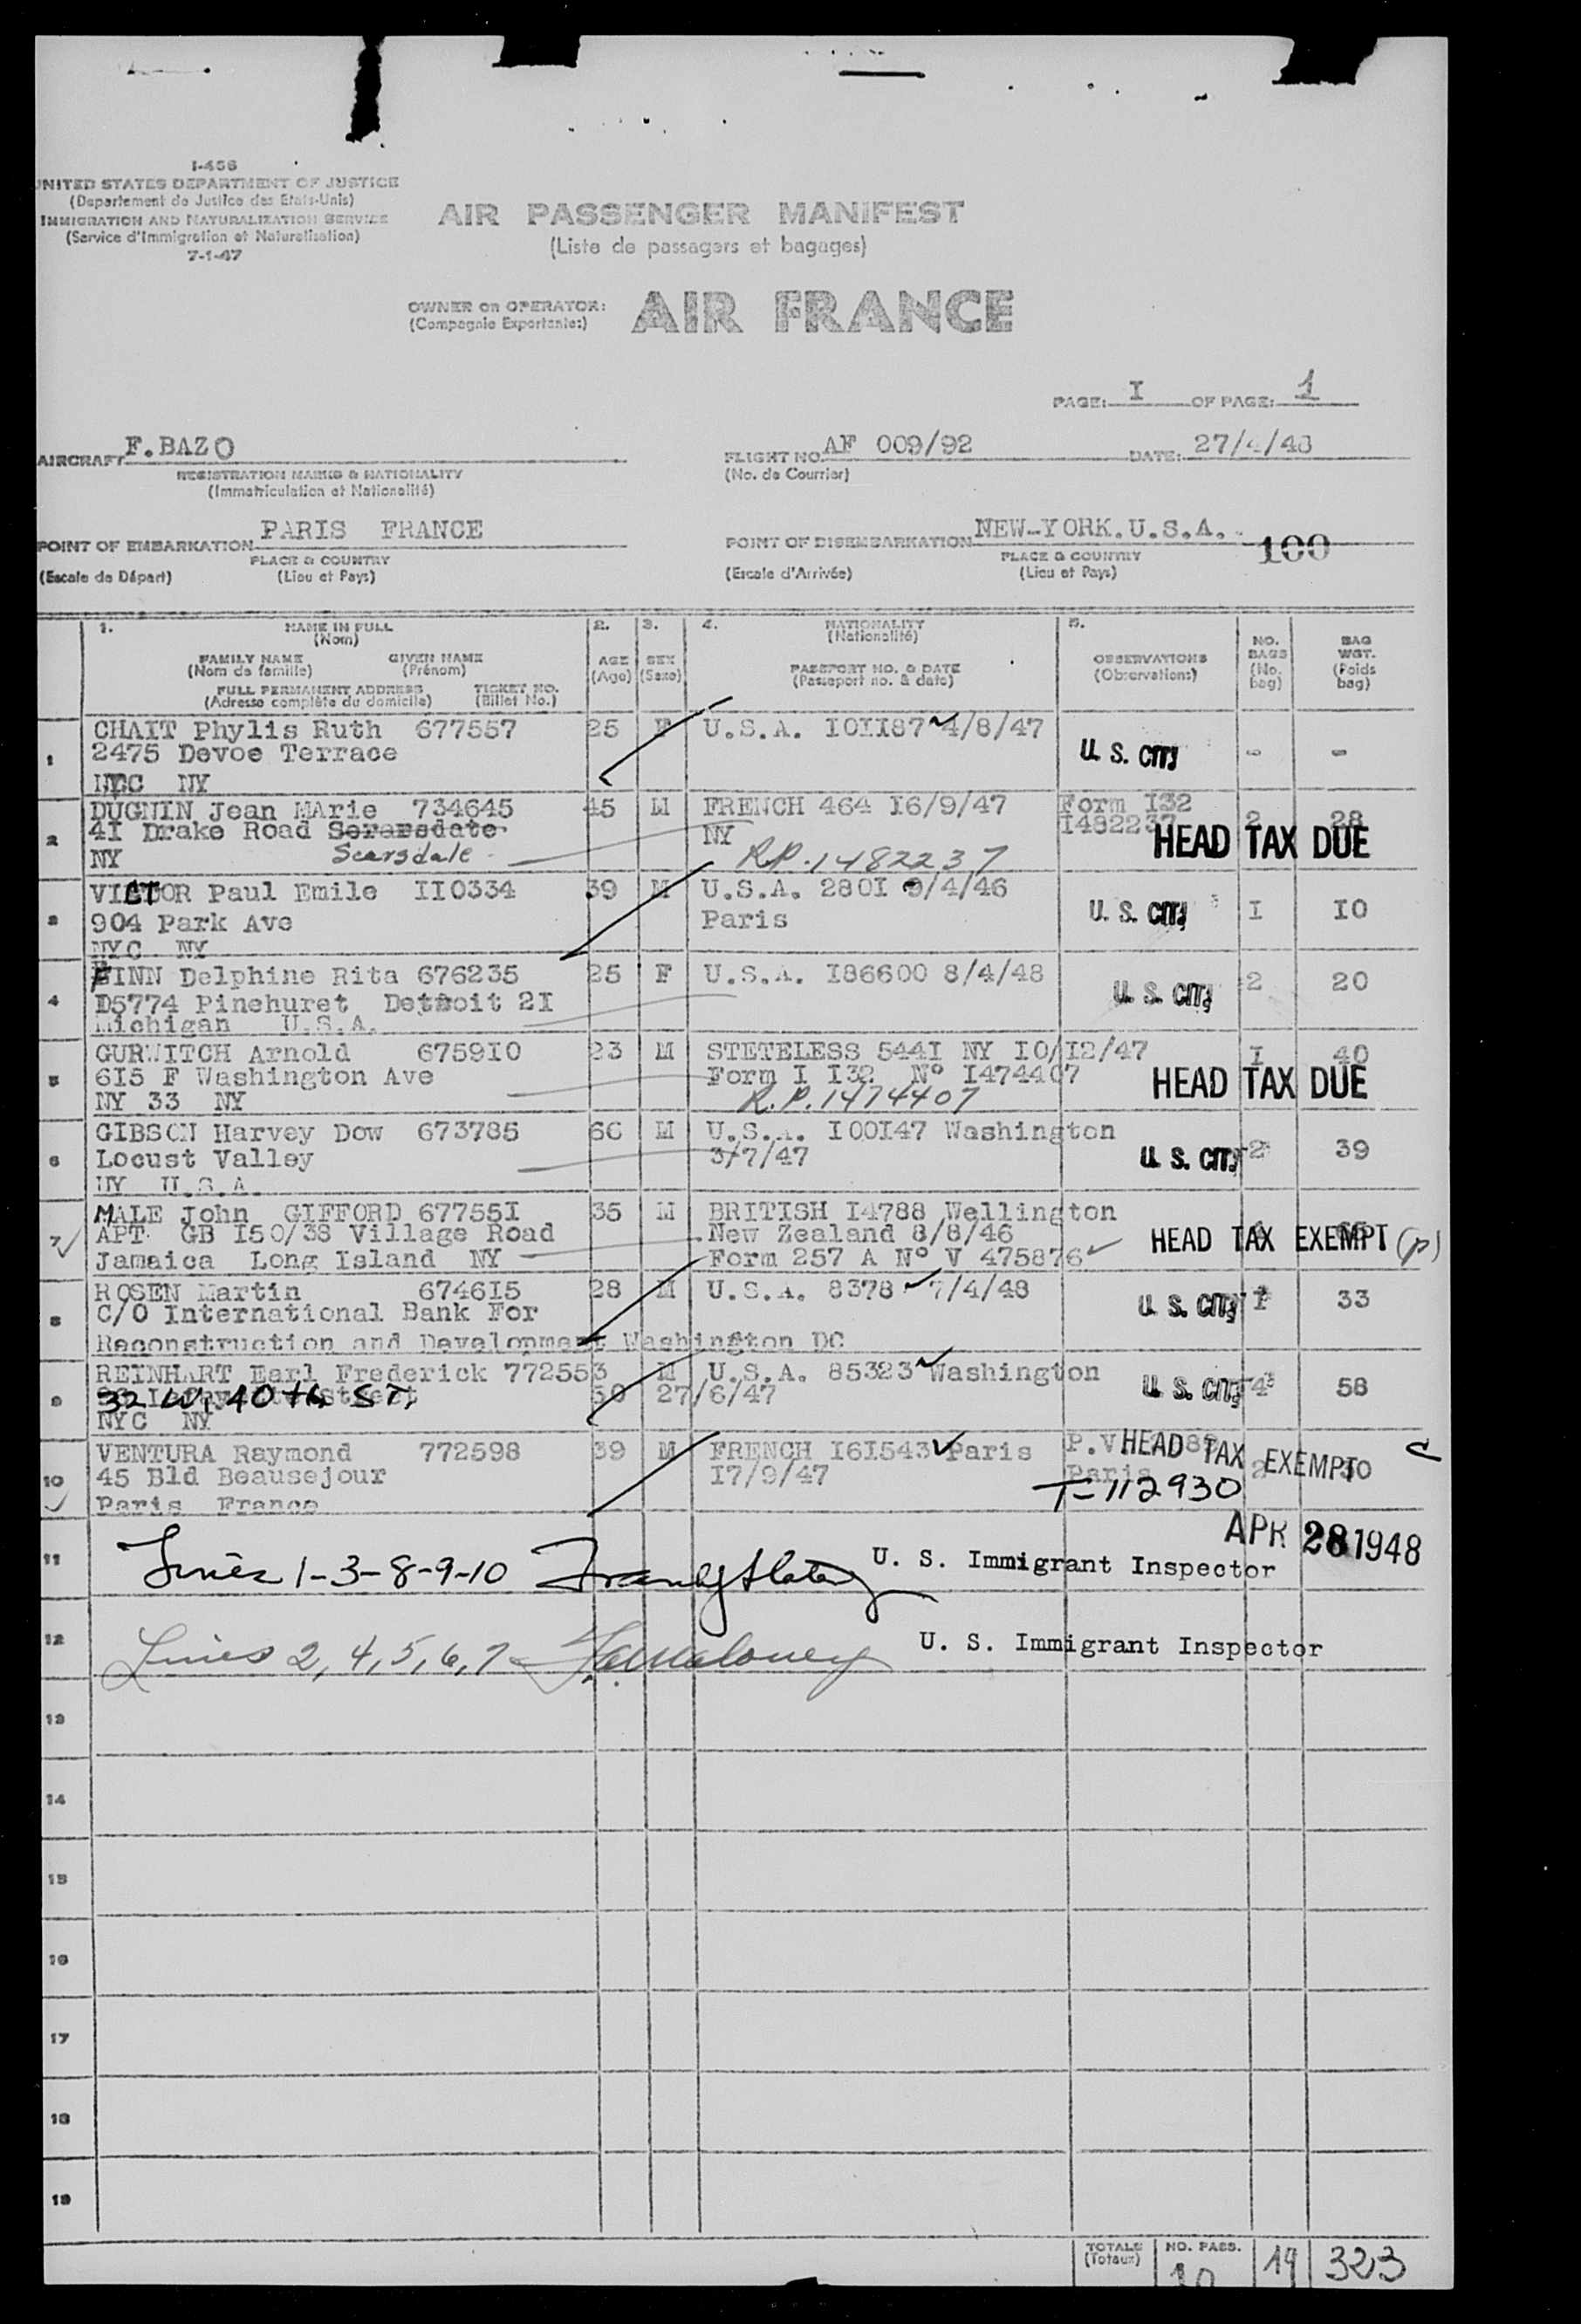 I-466
UNITED STATES DEPARTMENT OF JUSTICE
(Departement de Justice des Etats-Unis)
IMMIGRATION AND NATURALIZATION SERVICE
(Service d'Immigration et Naturalisation)
7-1-47
AIR PASSENGER MANIFEST
(Liste de passagers et bagages)
OWNER on OPERATOR: AIR FRANCE
(Compagnie Exportante:)
PAGE: I OF PAGE: 1
AIRCRAFT F.BAZO FLIGHT NO. AF 009/92 DATE: 27/4/48
REGISTRATION MARKS & NATIONALITY (No. de Courrier)
(Immatriculation et Nationalité)
POINT OF EMBARKATION PARIS FRANCE POINT OF DISEMBARKATION NEW-YORK.U.S.A. 100
PLACE & COUNTRY PLACE & COUNTRY
(Escale de Départ) (Lieu et Pays) (Escale d'Arrivée) (Lieu et Pays)
1. NAME IN FULL 2. 3. 4. NATIONALITY 5.
(Nom) (Nationalité) NO. BAG
FAMILY NAME GIVEN NAME AGE SEX PASSPORT NO. & DATE OBSERVATIONS BAGS WGT.
(Nom de famille) (Prénom) (Age) (Sexe) (Passeport no. & date) (Observations) (No. bag) (Poids bag)
FULL PERMANENT ADDRESS TICKET NO.
(Adresse complète du domicile) (Billet No.)
1 CHAIT Phylis Ruth 677557 25 F U.S.A. IOII87 4/8/47 U. S. CITY - -
2475 Devoe Terrace
NYC NY
2 DUGNIN Jean MArie 734645 45 M FRENCH 464 I6/9/47 Form I32 2 28
4I Drake Road NY I482237 HEAD TAX DUE
NY Scarsdale R.P. 1482237
3 VICTOR Paul Emile II0334 39 M U.S.A. 280I 9/4/46 U. S. CITY I IO
904 Park Ave Paris
NYC NY
4 FINN Delphine Rita 676235 25 F U.S.A. I86600 8/4/48 U. S. CITY 2 20
I5774 Pinehuret Detroit 2I
Michigan U.S.A.
5 GURWITCH Arnold 6759IO 23 M STETELESS 544I NY IO/I2/47 I 40
6I5 F Washington Ave Form I I32 N° I474407 HEAD TAX DUE
NY 33 NY R.P. 1474407
6 GIBSON Harvey Dow 673785 66 M U.S.A. I00I47 Washington U. S. CITY 2 39
Locust Valley 3/7/47
NY U.S.A.
7 MALE John GIFFORD 67755I 35 M BRITISH I4788 Wellington
APT GB I50/38 Village Road New Zealand 8/8/46 HEAD TAX EXEMPT (p)
Jamaica Long Island NY Form 257 A N° V 475876
8 ROSEN Martin 6746I5 28 M U.S.A. 8378 7/4/48 U. S. CITY 33
C/O International Bank For
Reconstruction and Development Washington DC
9 REINHART Earl Frederick 772553 M U.S.A. 85323 Washington U. S. CITY 4 58
32 W. 40th ST. 50 27/6/47
NYC NY
10 VENTURA Raymond 772598 39 M FRENCH I6I543 Paris P.V HEAD TAX EXEMPT C
45 Bld Beausejour I7/9/47 Paris 2
Paris France T-112930
APR 28 1948
11 Lines 1-3-8-9-10 U. S. Immigrant Inspector
12 Lines 2, 4, 5, 6, 7 U. S. Immigrant Inspector
13
14
15
16
17
18
19
TOTALS NO. PASS. 19 323
(Totaux) 10